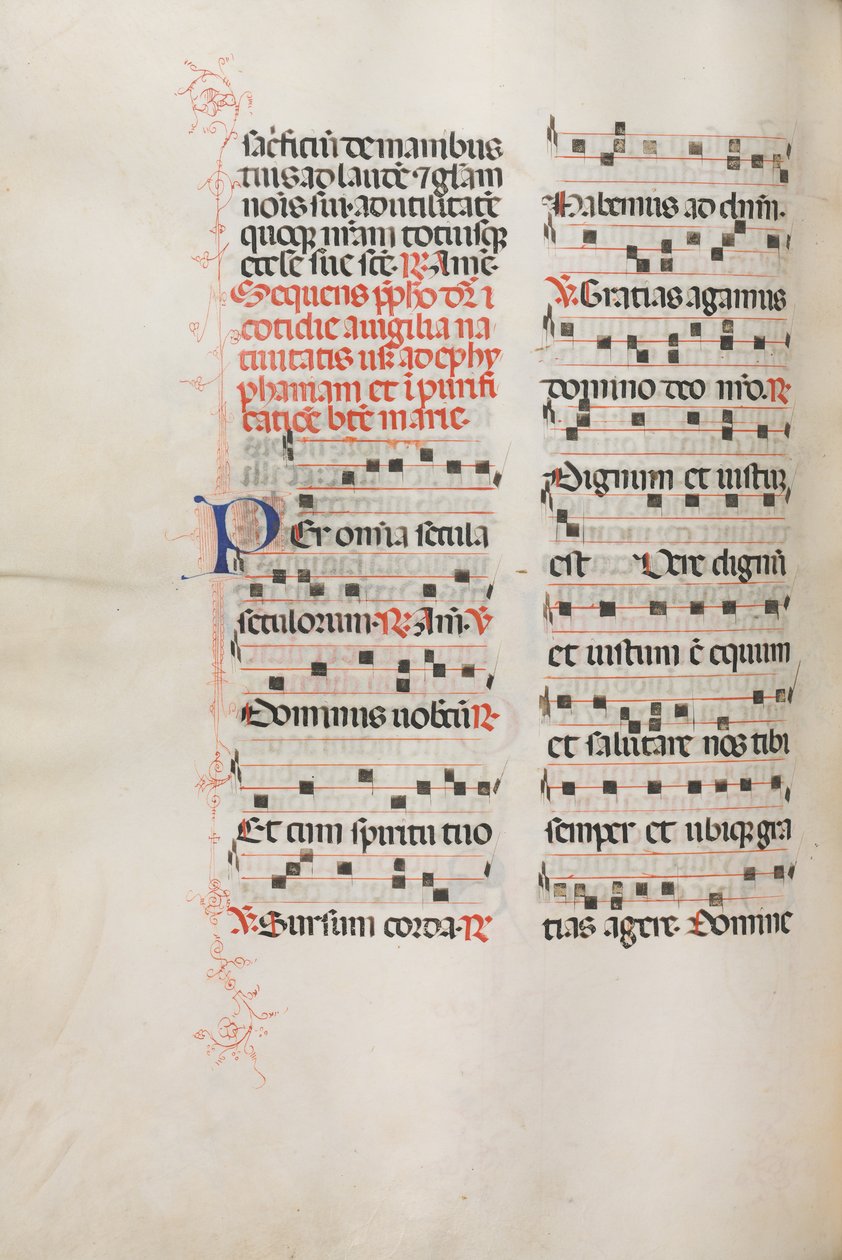 sac̄ficiū de manibus
tuis ad laudē ⁊ glām
nōis sui. ad utilitatē
quoqꝫ nr̄am totiusqꝫ
eccl̄e sue scē. ℟. Amē.
Sequens p̄pho dr̄ i
cotidie a uigilia na
tiuitatis usꝫ ad ephy
phaniam et ī purifi
catiōe btē marie.
PEr omīa secula
seculorum. ℟. Am̄. ℣
Dominus uobcū ℟
Et cum spiritu tuo
℣. Sursum corda. ℟
Habemus ad dnm̄.
℣. Gratias agamus
domino deo nr̄o. ℟
Dignum et iustuꝫ
est Vere dignū
et iustum ē equum
et salutare nos tibi
semper et ubiqꝫ gra
tias agere. Domine